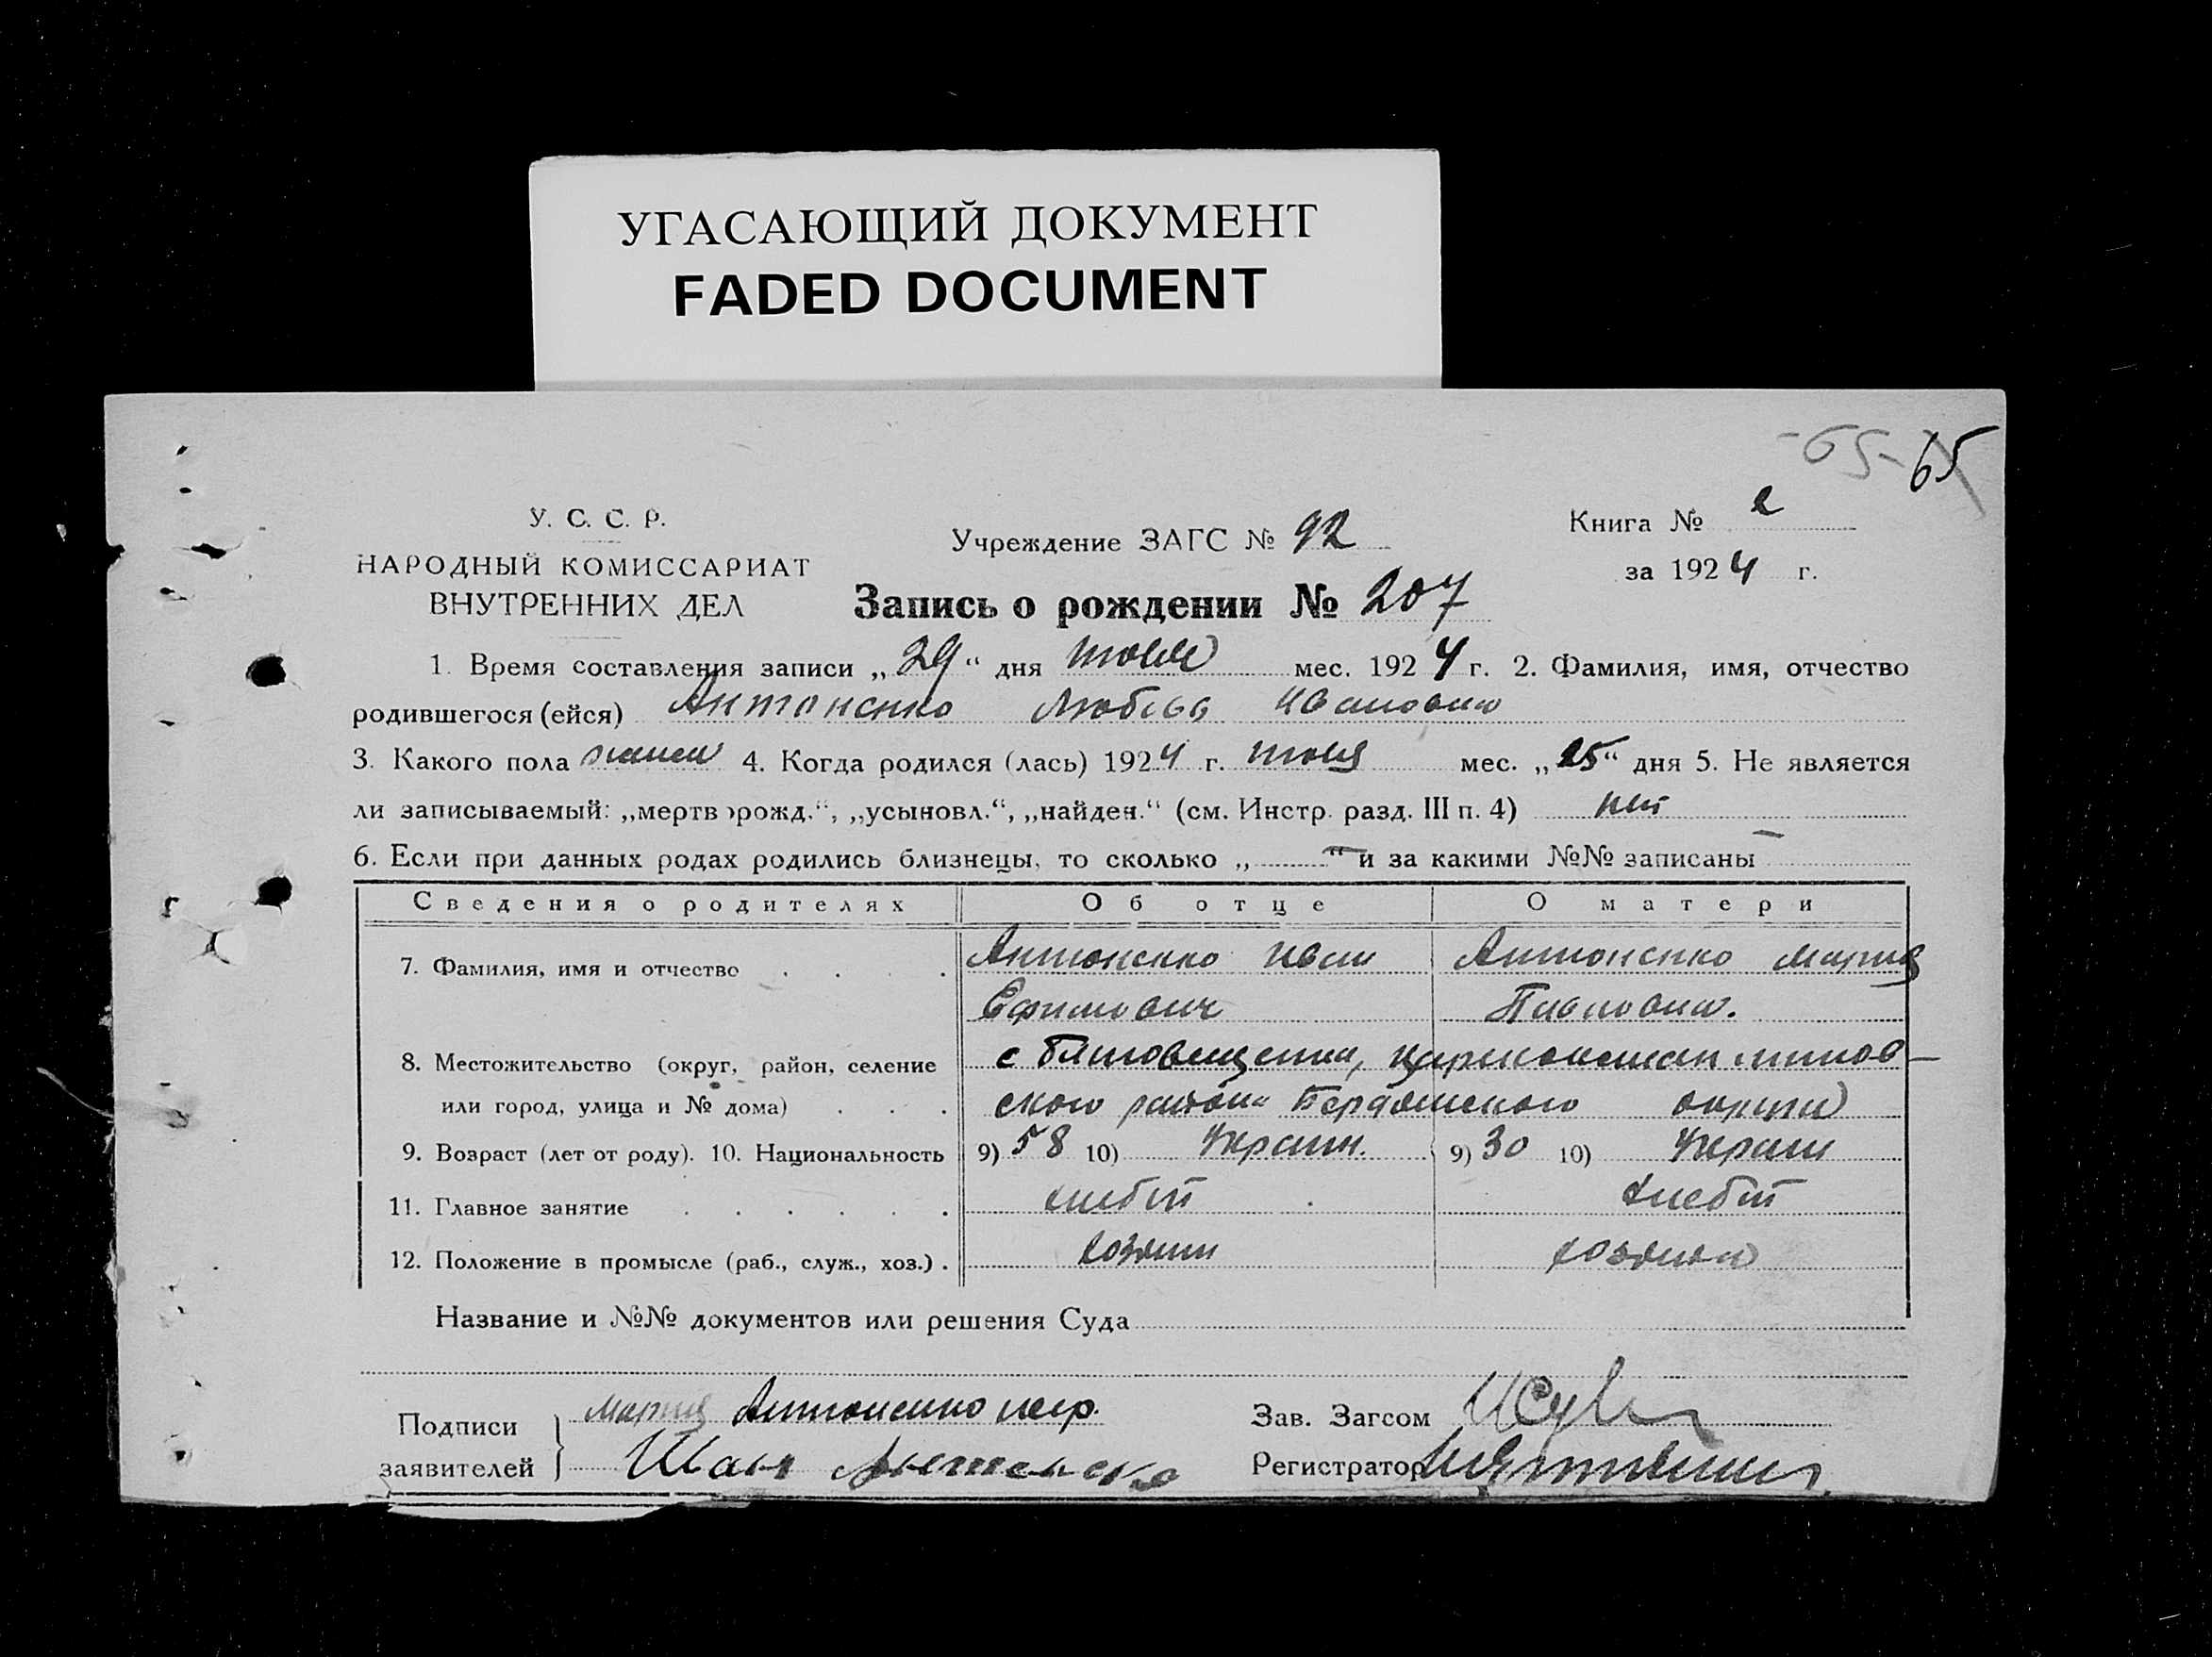 УГАСАЮЩИЙ ДОКУМЕНТ
FADED DOCUMENT
-65- 65
У. С. С. Р.
НАРОДНЫЙ КОМИССАРИАТ
ВНУТРЕННИХ ДЕЛ
Учреждение ЗАГС № 92
Книга № 2
за 1924 г.
Запись о рождении № 207
1. Время составления записи „29“ дня мес. 1924 г. 2. Фамилия, имя, отчество
родившегося (ейся) Антоненко Любовь Ивановна
3. Какого пола женск 4. Когда родился (лась) 1924 г. мес. „25“ дня 5. Не является
ли записываемый: „мертворожд.“, „усыновл.“, „найден.“ (см. Инстр. разд. III п. 4) нет
6. Если при данных родах родились близнецы, то сколько „—“ и за какими №№ записаны —
Сведения о родителях Об отце О матери
7. Фамилия, имя и отчество . . . . Антоненко Иван Антоненко Мария
Ефимович Павловна.
8. Местожительство (округ, район, селение с Благовещенка, Цареконстантинов-
или город, улица и № дома) . . . ского района Бердянского округа
9. Возраст (лет от роду). 10. Национальность 9) 58 10) Украин. 9) 30 10) Украин
11. Главное занятие . . . . . . хлебоп хлебоп
12. Положение в промысле (раб., служ., хоз.) . хозяин хозяйка
Название и №№ документов или решения Суда
Подписи
заявителей
Мария Антоненко негр.
Иван Антоненко
Зав. Загсом
Регистратор